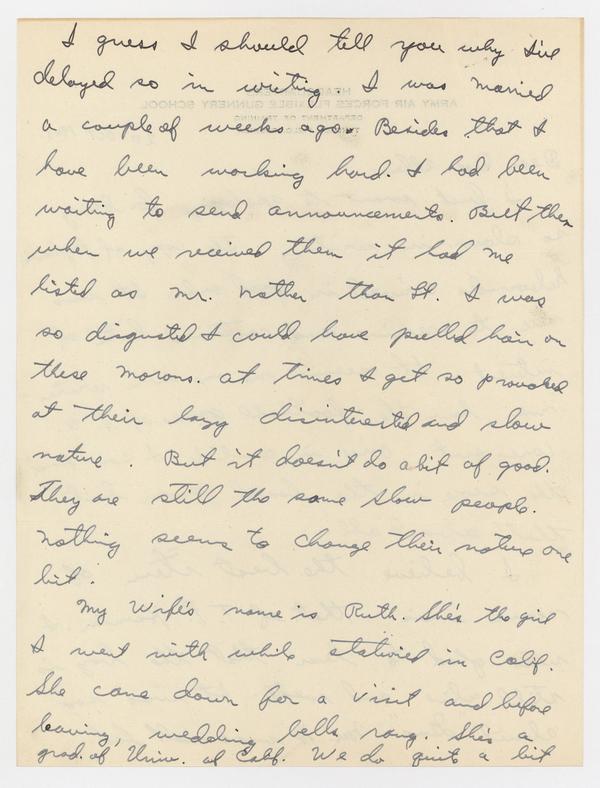 I guess I should tell you why I've
delayed so in writing. I was married
a couple of weeks ago. Besides that I
have been working hard. I had been
waiting to send announcements. But then
when we received them it had me
listed as Mr. rather than Lt. I was
so disgusted I could have pulled hair on
these morons. At times I get so provoked
at their lazy disinterested and slow
nature. But it doesn't do a bit of good.
They are still the same slow people.
Nothing seems to change their nature one
bit.
My Wife's name is Ruth. She's the girl
I went with while stationed in Calif.
She came down for a visit and before
leaving, wedding bells rang. She's a
grad. of Univ. of Calif. We do quite a bit